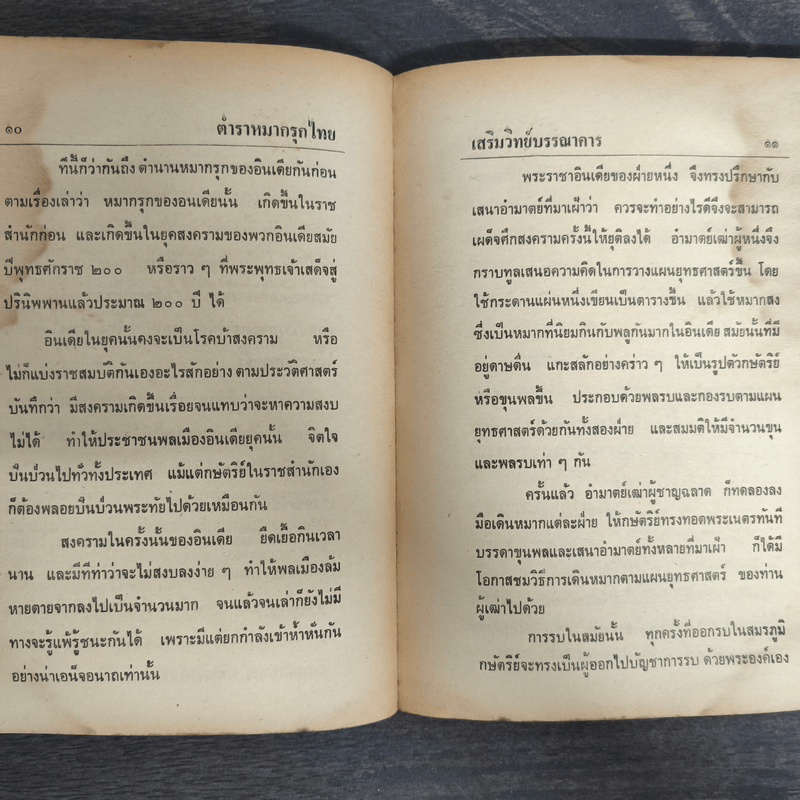 ๑๐ ตำราหมากรุกไทย
ทีนี้ก็ว่ากันถึง ตำนานหมากรุกของอินเดียกันก่อน
ตามเรื่องเล่าว่า หมากรุกของอินเดียนั้น เกิดขึ้นในราช
สำนักก่อน และเกิดขึ้นในยุคสงครามของพวกอินเดียสมัย
ปีพุทธศักราช ๒๐๐ หรือราว ๆ ที่พระพุทธเจ้าเสด็จสู่
ปรินิพพานแล้วประมาณ ๒๐๐ ปี ได้
อินเดียในยุคนั้นคงจะเป็นโรคบ้าสงคราม หรือ
ไม่ก็แบ่งราชสมบัติกันเองอะไรสักอย่าง ตามประวัติศาสตร์
บันทึกว่า มีสงครามเกิดขึ้นเรื่อยจนแทบว่าจะหาความสงบ
ไม่ได้ ทำให้ประชาชนพลเมืองอินเดียยุคนั้น จิตใจ
ปั่นป่วนไปทั่วทั้งประเทศ แม้แต่กษัตริย์ในราชสำนักเอง
ก็ต้องพลอยปั่นป่วนพระทัยไปด้วยเหมือนกัน
สงครามในครั้งนั้นของอินเดีย ยืดเยื้อกินเวลา
นาน และมีทีท่าว่าจะไม่สงบลงง่าย ๆ ทำให้พลเมืองล้ม
หายตายจากลงไปเป็นจำนวนมาก จนแล้วจนเล่าก็ยังไม่มี
ทางจะรู้แพ้รู้ชนะกันได้ เพราะมีแต่ยกกำลังเข้าห้ำหั่นกัน
อย่างน่าเอน็จอนาถเท่านั้น
เสริมวิทย์บรรณาคาร ๑๑
พระราชาอินเดียของฝ่ายหนึ่ง จึงทรงปรึกษากับ
เสนาอำมาตย์ที่มาเฝ้าว่า ควรจะทำอย่างไรดีจึงจะสามารถ
เผด็จศึกสงครามครั้งนี้ให้ยุติลงได้ อำมาตย์เฒ่าผู้หนึ่งจึง
กราบทูลเสนอความคิดในการวางแผนยุทธศาสตร์ขึ้น โดย
ใช้กระดานแผ่นหนึ่งเขียนเป็นตารางขึ้น แล้วใช้หมากสง
ซึ่งเป็นหมากที่นิยมกินกับพลูกันมากในอินเดีย สมัยนั้นที่มี
อยู่ดาษดื่น แกะสลักอย่างคร่าว ๆ ให้เป็นรูปตัวกษัตริย์
หรือขุนพลขึ้น ประกอบด้วยพลรบและกองรบตามแผน
ยุทธศาสตร์ด้วยกันทั้งสองฝ่าย และสมมติให้มีจำนวนขุน
และพลรบเท่า ๆ กัน
ครั้นแล้ว อำมาตย์เฒ่าผู้ชาญฉลาด ก็ทดลองลง
มือเดินหมากแต่ละฝ่าย ให้กษัตริย์ทรงทอดพระเนตรทันที
บรรดาขุนพลและเสนาอำมาตย์ทั้งหลายที่มาเฝ้า ก็ได้มี
โอกาสชมวิธีการเดินหมากตามแผนยุทธศาสตร์ ของท่าน
ผู้เฒ่าไปด้วย
การรบในสมัยนั้น ทุกครั้งที่ออกรบในสมรภูมิ
กษัตริย์จะทรงเป็นผู้ออกไปบัญชาการรบ ด้วยพระองค์เอง